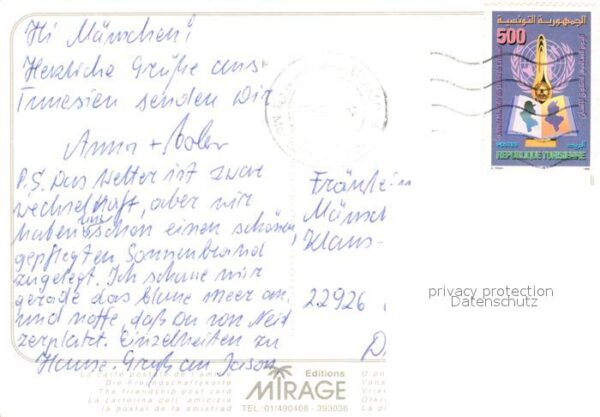 Hi Mänschen!
Herzliche Grüße aus
Tunesien senden Dir
Anna +
P.S. Das Wetter ist zwar
wechselhaft, aber wir
haben uns schon einen schönen,
gepflegten Sonnenbrand
zugelegt. Ich schaue mir
gerade das blaue Meer an,
und hoffe, daß Du vor Neid
zerplatzt. Einzelheiten zu
Hause. Gruß an Jason
الجمهورية التونسية
500
البريد
POSTES
REPUBLIQUE TUNISIENNE
Fräulein
Mänsch
Klaus-
22926
D
privacy protection
Datenschutz
La carte postale de l'amitié
Die Freundschaftskarte
The friendship post card
La cartolina dell' amicizia
la postal de la amistad
Editions
MIRAGE
TEL: 01/490466 - 393036